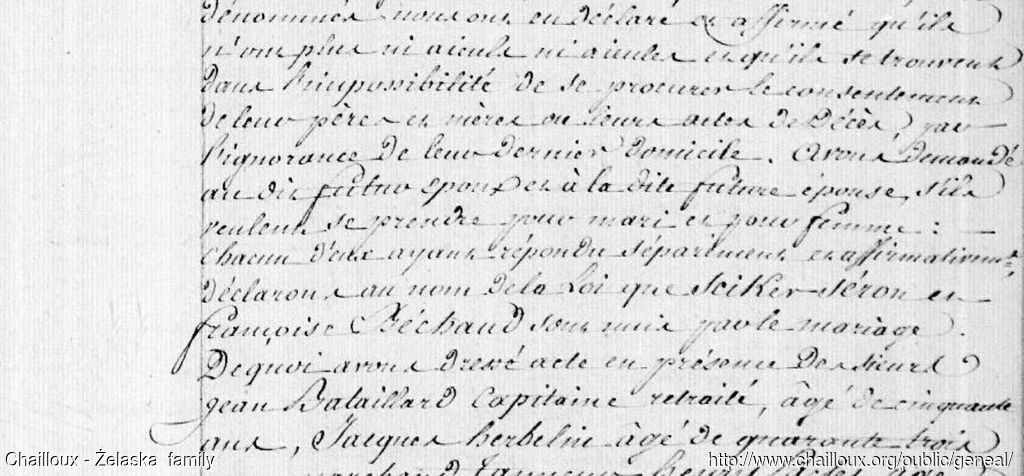 dénommés nous ont en déclaré et affirmé qu'ils
n'ont plus ni aieuls ni aieules et qu'ils se trouvent
dans l'impossibilité de se procurer le consentement
de leur pères et mères ou leurs actes de Décès, par
l'ignorance de leur dernier domicile. Avons demandé
au dit futur époux et à la dite future épouse, s'ils
veulent se prendre pour mari et pour femme : —
Chacun d'eux ayant répondu séparément et affirmativemt,
déclarons au nom de la Loi que Seiker Séron et
françoise Béchaud sont unis par le mariage.
De quoi avons dressé acte en présence des sieurs
Jean Bataillard Capitaine retraité, âgé de cinquante
ans, Jacques herbelin âgé de quarante trois
marchand
Chailloux - Żelaska family
http://www.chailloux.org/public/geneal/